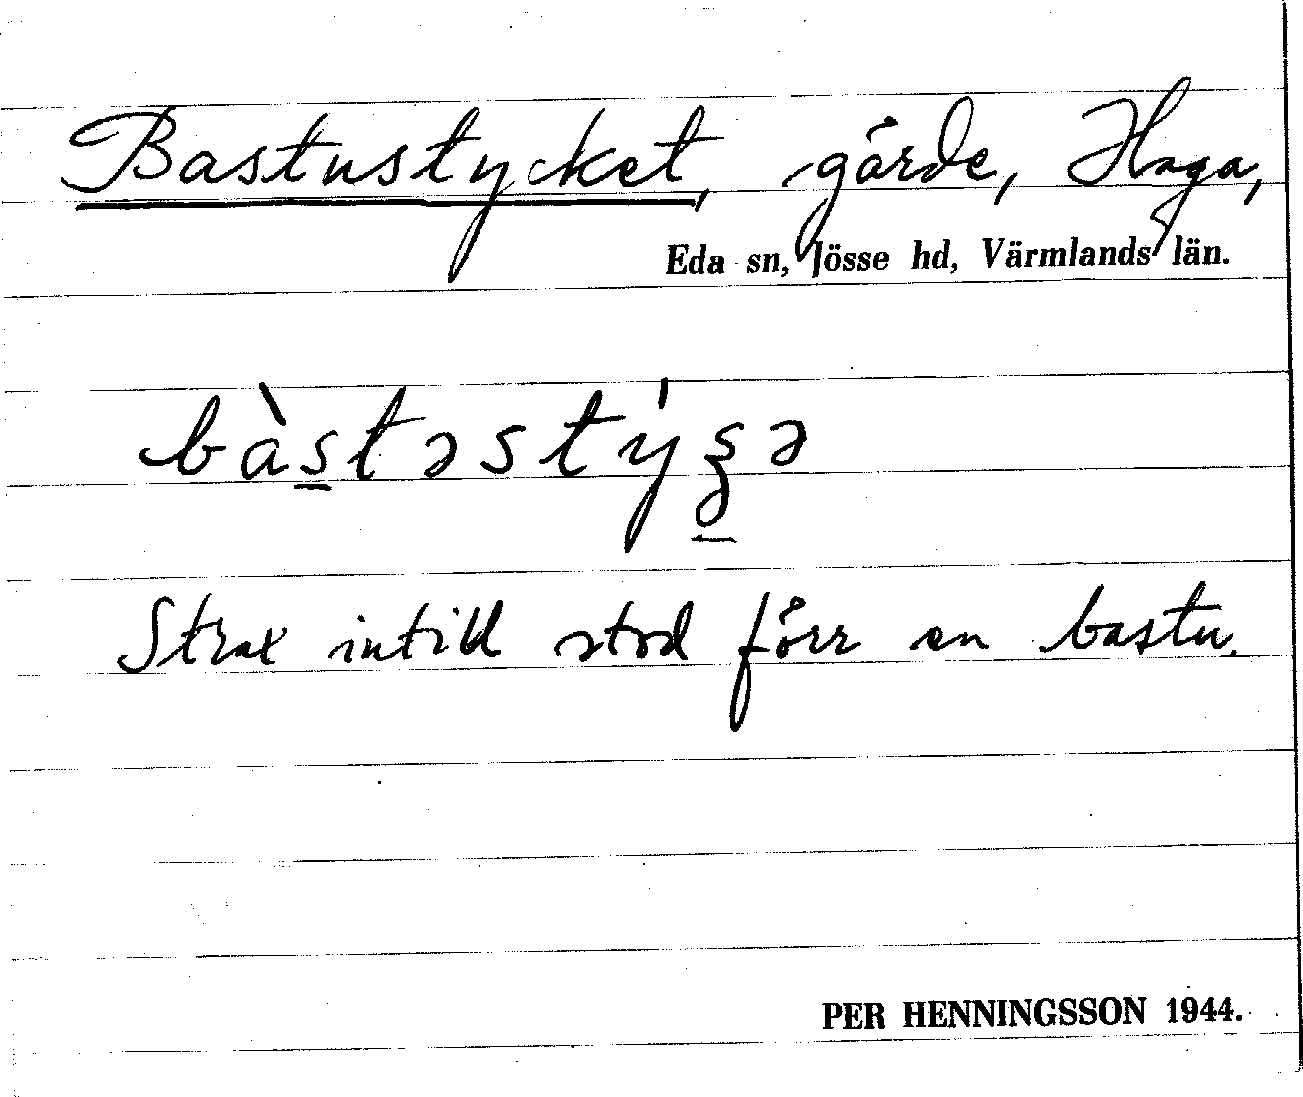 Bastustycket, gärde, Haga,
Eda sn, Jösse hd, Värmlands län.
bàs̲təstýʂ̲ə
Strax intill stod förr en bastu.
PER HENNINGSSON 1944.